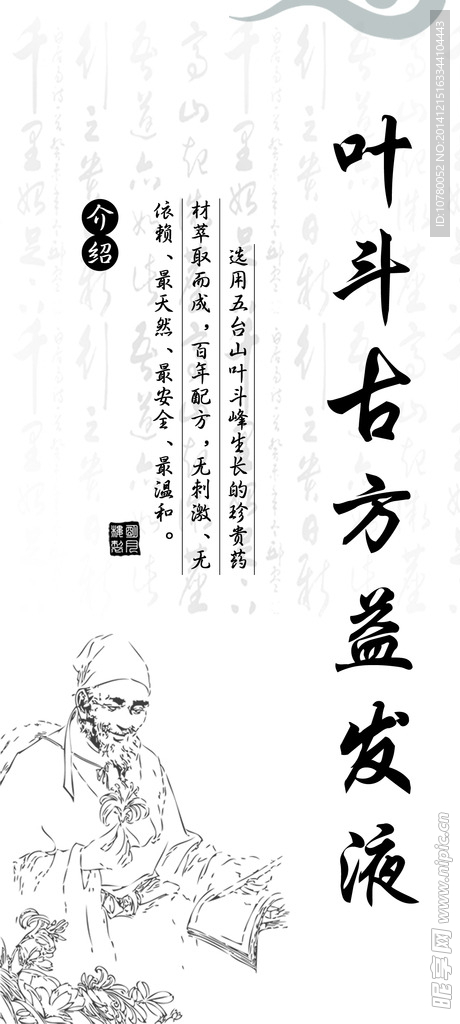 叶斗古方益发液
介绍
选用五台山叶斗峰生长的珍贵药
材萃取而成，百年配方，无刺激、无
依赖、最天然、最安全、最温和。
ID:10780052 NO:20141215163344104443
昵享网 www.nipic.cn